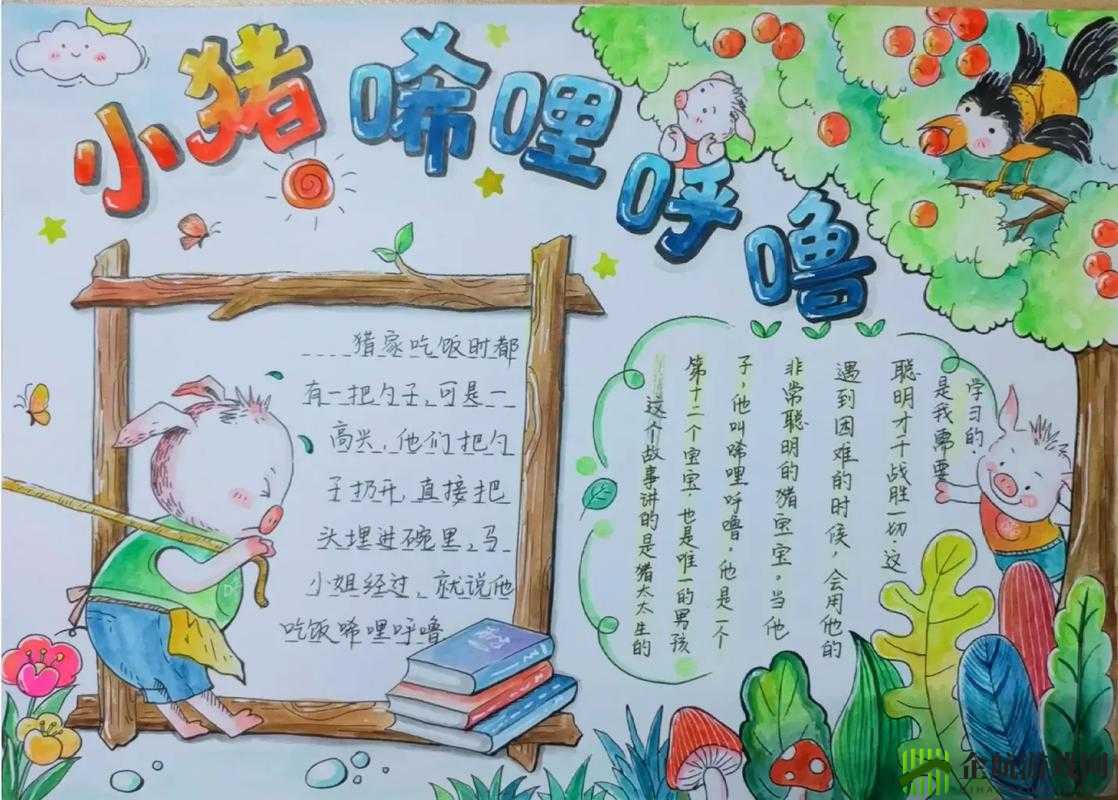 小猪唏哩呼噜
猪家吃饭时都
有一把勺子,可是一
高兴,他们把勺
子扔开,直接把
头埋进碗里,马
小姐经过,就说他
吃饭唏哩呼噜
这个故事讲的是猪太太生的
第十二个宝宝.也是唯一的男孩
子,他叫唏哩呼噜。他是一个
非常聪明的猪宝宝。当他
遇到困难的时候,会用他的
聪明才干战胜一切 这
是我需要
学习的.
企航游戏网